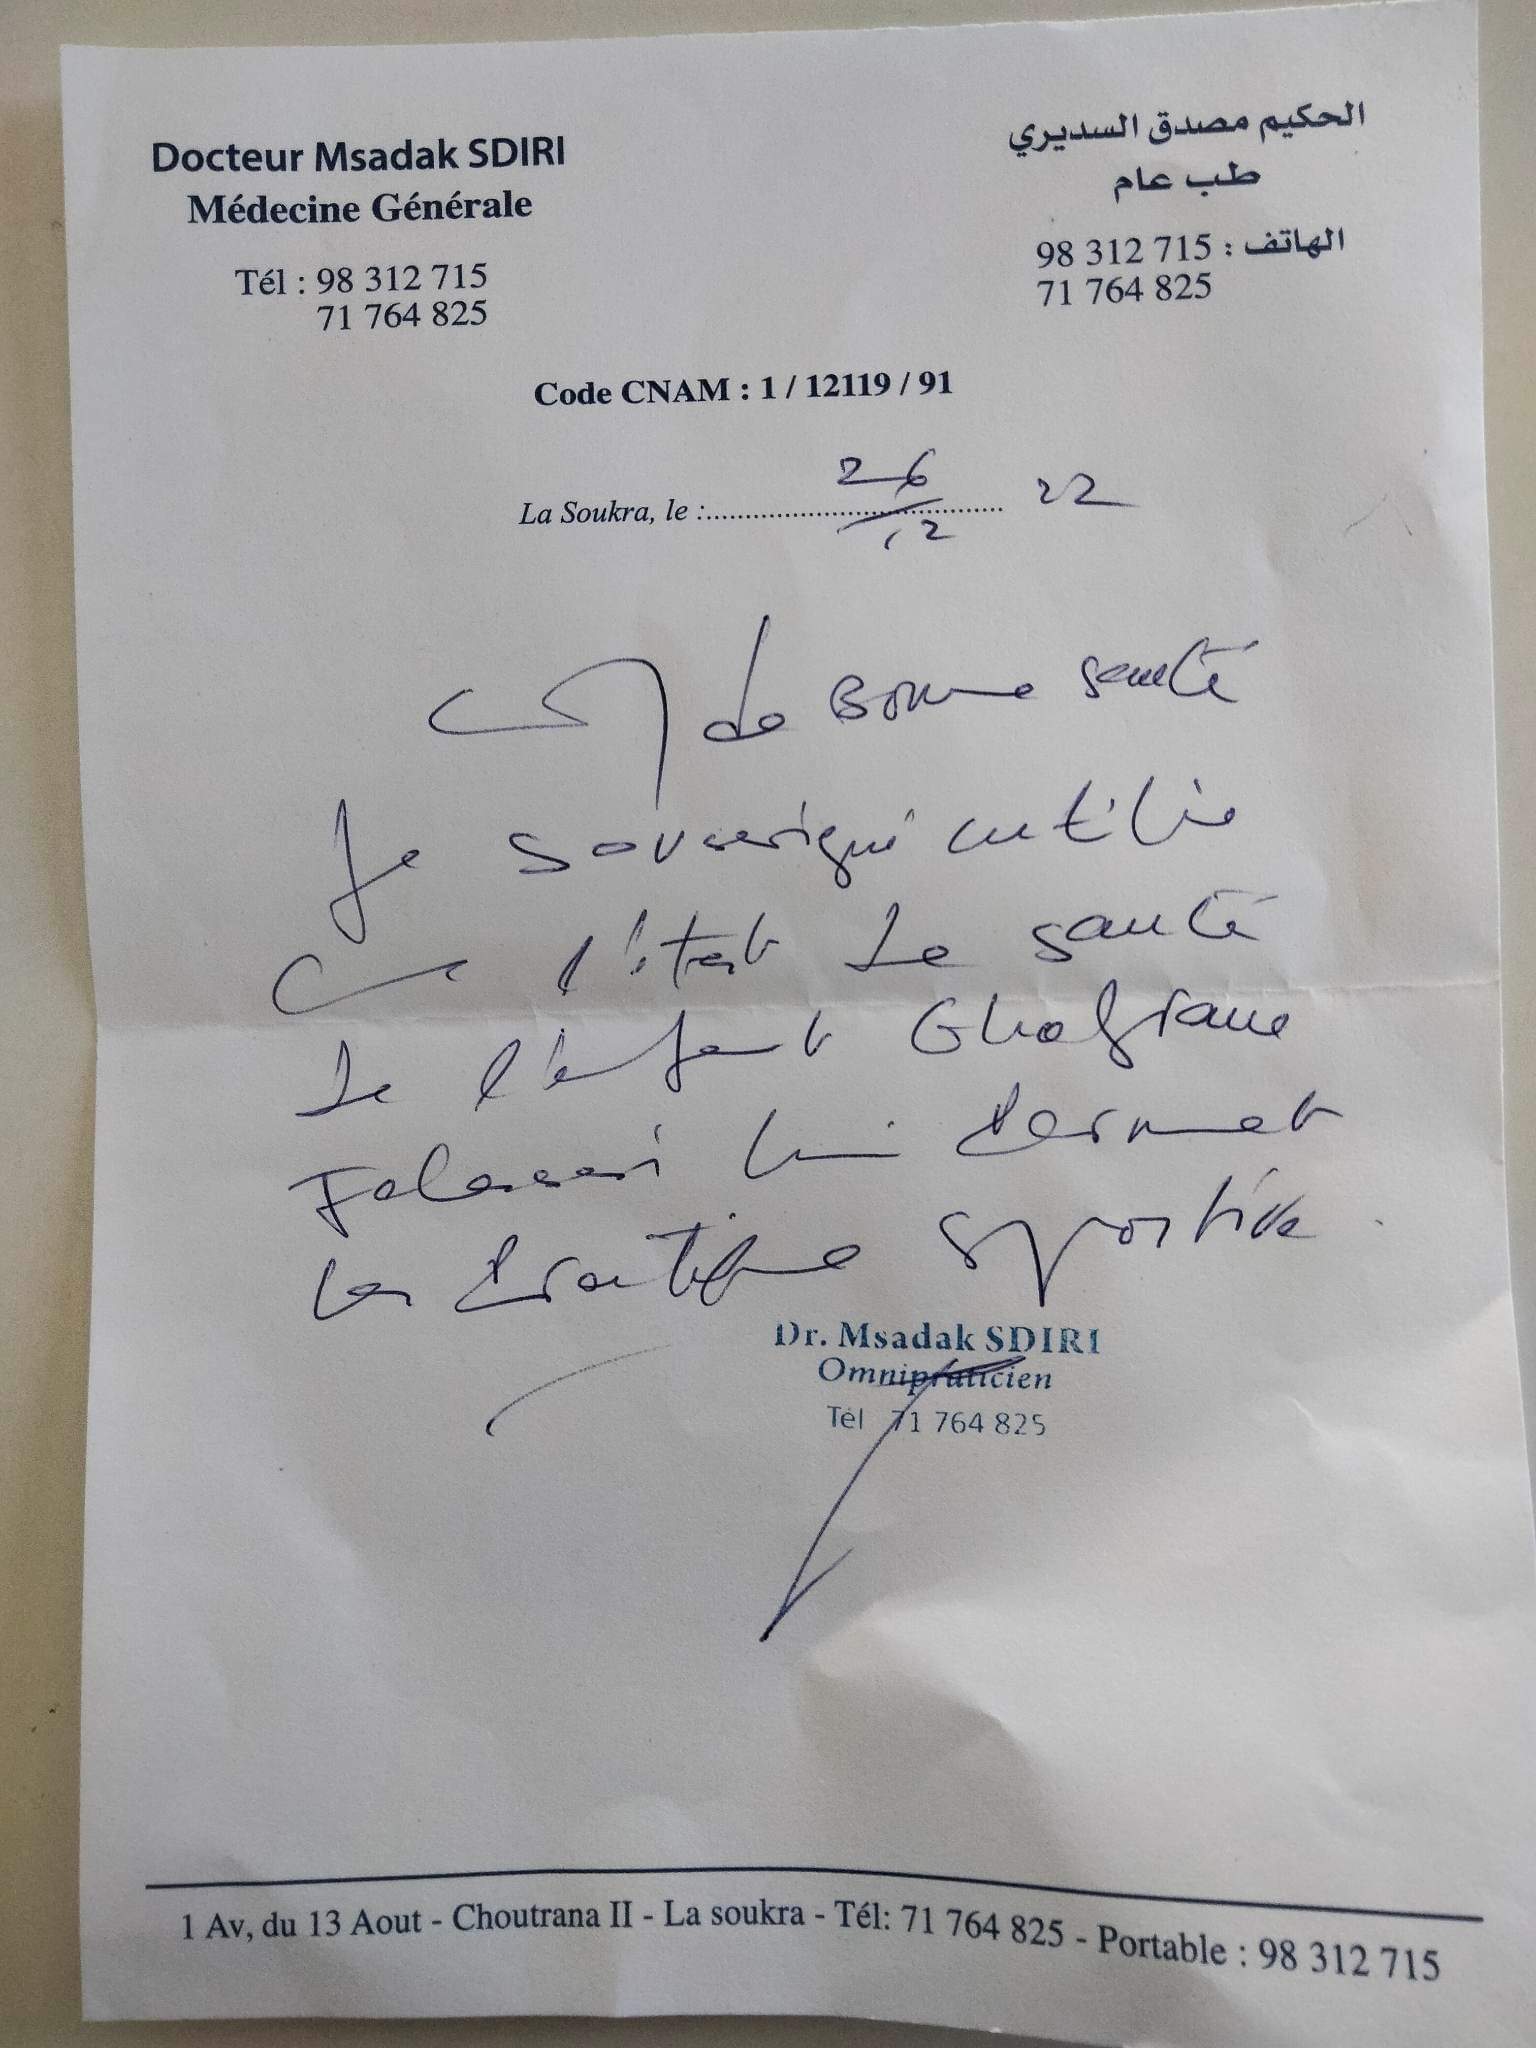 Docteur Msadak SDIRI
Médecine Générale
Tél : 98 312 715
71 764 825
الحكيم مصدق السديري
طب عام
الهاتف : 98 312 715
71 764 825
Code CNAM : 1 / 12119 / 91
La Soukra, le : 26/12 22
de Bonne santé
Je soussigné certifie
que l'état de santé
de l'enfant Ghofrane
lui permet
la pratique sportive.
Dr. Msadak SDIRI
Omnipraticien
Tél 71 764 825
1 Av, du 13 Aout - Choutrana II - La soukra - Tél: 71 764 825 - Portable : 98 312 715